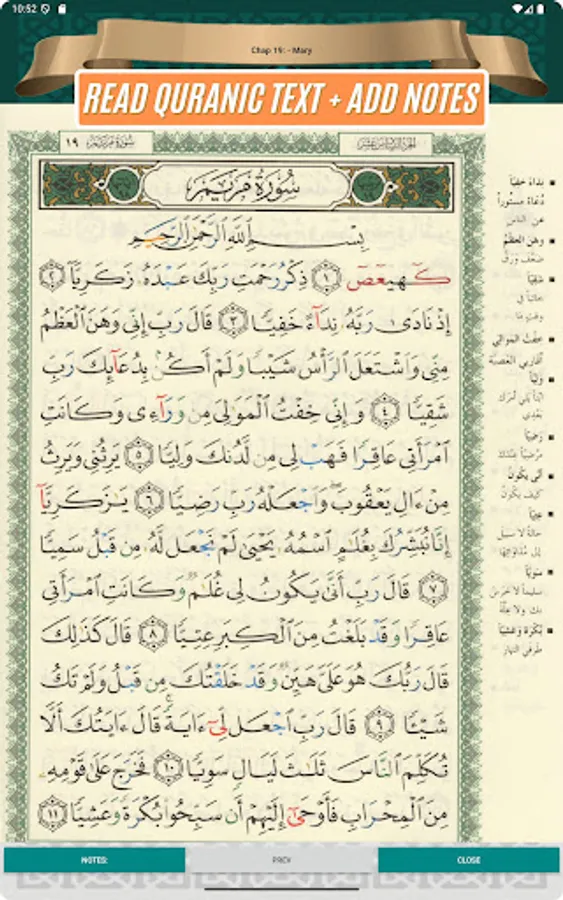 10:52
Chap 19: - Mary
READ QURANIC TEXT + ADD NOTES
سُورَةُ مَرْيَم ١٩
الجزء السادس عشر
سُورَةُ مَرْيَمَ
بِسْمِ ٱللَّهِ ٱلرَّحْمَٰنِ ٱلرَّحِيمِ
كٓهيعٓصٓ ١ ذِكْرُ رَحْمَتِ رَبِّكَ عَبْدَهُۥ زَكَرِيَّآ ٢
إِذْ نَادَىٰ رَبَّهُۥ نِدَآءً خَفِيًّا ٣ قَالَ رَبِّ إِنِّى وَهَنَ ٱلْعَظْمُ
مِنِّى وَٱشْتَعَلَ ٱلرَّأْسُ شَيْبًا وَلَمْ أَكُنۢ بِدُعَآئِكَ رَبِّ
شَقِيًّا ٤ وَإِنِّى خِفْتُ ٱلْمَوَٰلِىَ مِن وَرَآءِى وَكَانَتِ
ٱمْرَأَتِى عَاقِرًا فَهَبْ لِى مِن لَّدُنكَ وَلِيًّا ٥ يَرِثُنِى وَيَرِثُ
مِنْ ءَالِ يَعْقُوبَ ۖ وَٱجْعَلْهُ رَبِّ رَضِيًّا ٦ يَٰزَكَرِيَّآ
إِنَّا نُبَشِّرُكَ بِغُلَٰمٍ ٱسْمُهُۥ يَحْيَىٰ لَمْ نَجْعَل لَّهُۥ مِن قَبْلُ سَمِيًّا
٧ قَالَ رَبِّ أَنَّىٰ يَكُونُ لِى غُلَٰمٌ وَكَانَتِ ٱمْرَأَتِى
عَاقِرًا وَقَدْ بَلَغْتُ مِنَ ٱلْكِبَرِ عِتِيًّا ٨ قَالَ كَذَٰلِكَ
قَالَ رَبُّكَ هُوَ عَلَىَّ هَيِّنٌ وَقَدْ خَلَقْتُكَ مِن قَبْلُ وَلَمْ تَكُ
شَيْـًٔا ٩ قَالَ رَبِّ ٱجْعَل لِّىٓ ءَايَةً ۚ قَالَ ءَايَتُكَ أَلَّا
تُكَلِّمَ ٱلنَّاسَ ثَلَٰثَ لَيَالٍ سَوِيًّا ١٠ فَخَرَجَ عَلَىٰ قَوْمِهِۦ
مِنَ ٱلْمِحْرَابِ فَأَوْحَىٰٓ إِلَيْهِمْ أَن سَبِّحُوا۟ بُكْرَةً وَعَشِيًّا ١١
نِدَاءً خَفِيًّا
دُعَاءً مَسْتُوراً
عن الناس
وَهَنَ العَظْمُ
ضَعُفَ وَرَقَّ
شَقِيًّا
خائباً في
خِفْتُ المَوَالِيَ
أقاربي العَصَبَة
وَلِيًّا
ابْناً يَلِي أمْرَكَ
بَعْدِي
رَضِيًّا
مَرْضِيًّا عِنْدَكَ
أنَّى يَكُونُ
كَيْفَ يَكُونُ
عِتِيًّا
حالةً لا سبيل
إلى مُدَاوَاتِهَا
سَوِيًّا
سَلِيماً لا خَرَسَ
بك ولا عِلَّة
بُكْرَةً وَعَشِيًّا
طَرَفَيِ النَّهَارِ
NOTES:
PREV
CLOSE